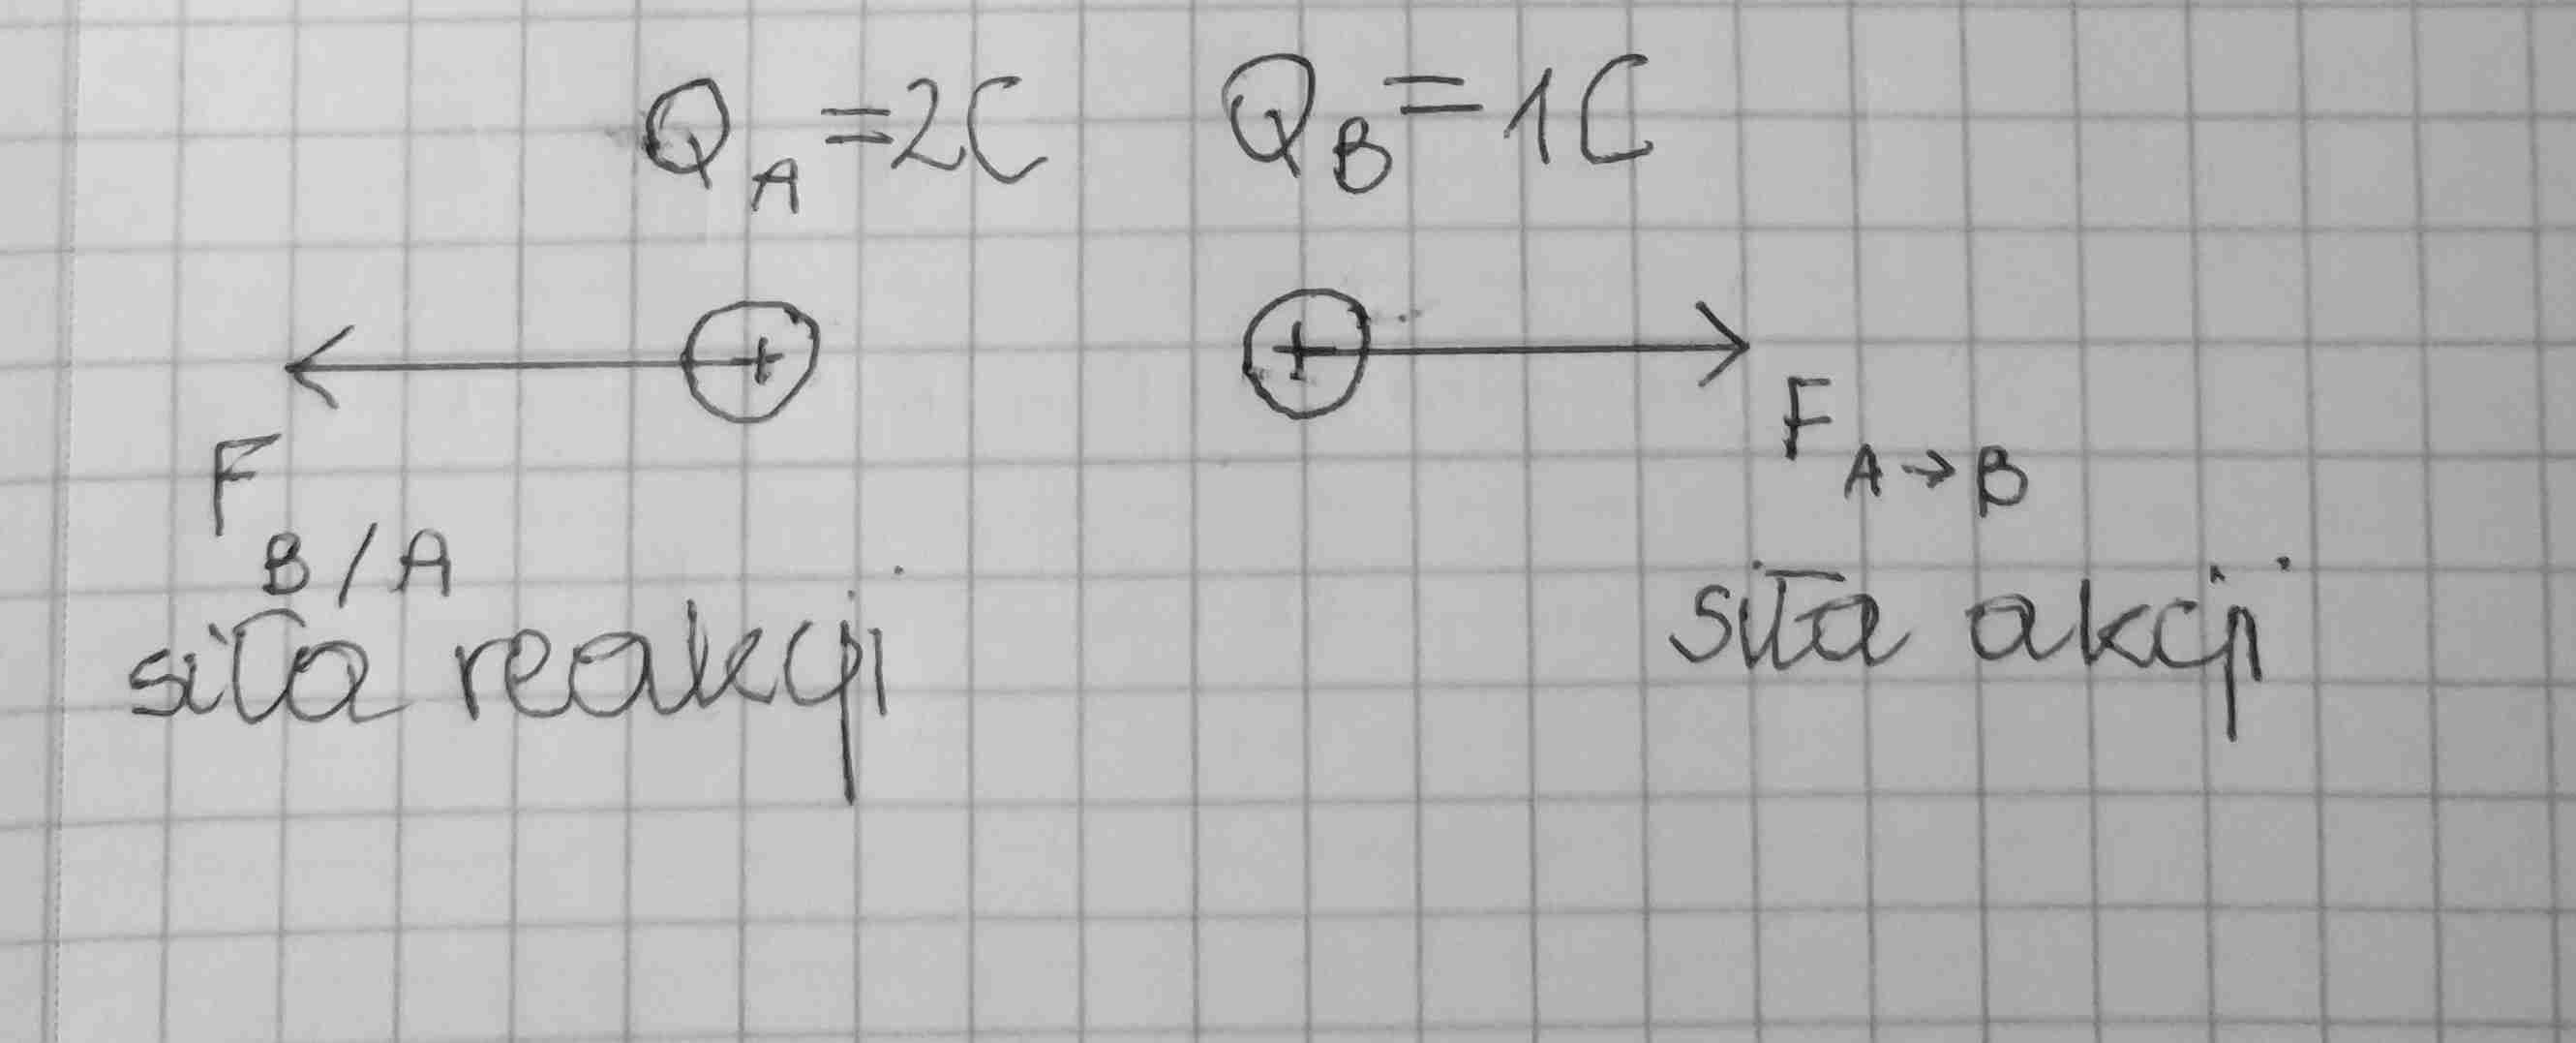 Q_A = 2C
Q_B = 1C
+
+
F_B/A
F_A→B
siła reakcji
siła akcji